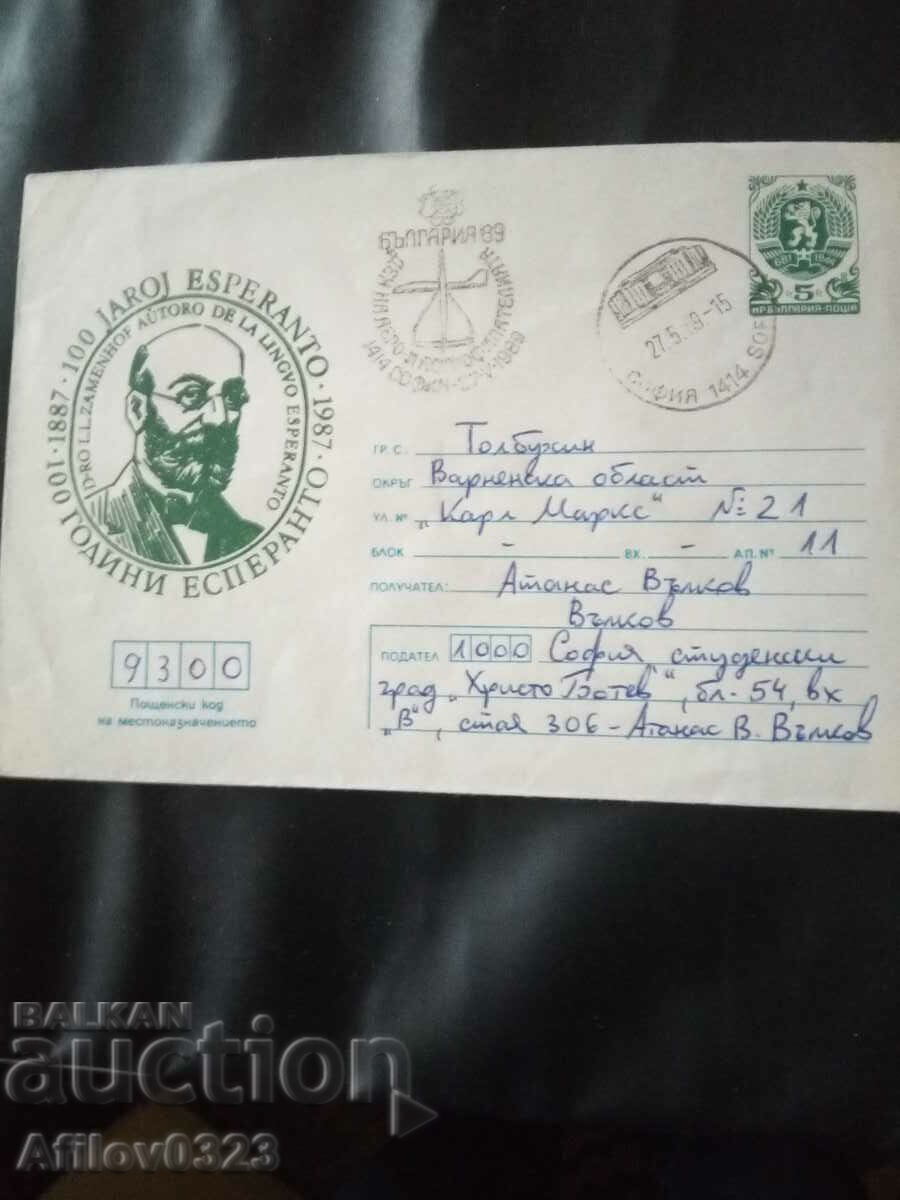 100 ГОДИНИ ЕСПЕРАНТО · 1887 · 100 JAROJ ESPERANTO · 1987 ·
D-RO L.L. ZAMENHOF AŬTORO DE LA LINGVO ESPERANTO
БЪЛГАРИЯ'89
ДЕН НА
1414 СОФИЯ 1989
27.5.89-15
СОФИЯ 1414 SOF
681 1944
5
НР БЪЛГАРИЯ-ПОЩА
ГР. С. Толбухин
ОКРЪГ Варненска област
УЛ. № „Карл Маркс“ №: 21
БЛОК - ВХ. - АП. № 11
ПОЛУЧАТЕЛ: Атанас Вълков
Вълков
ПОДАТЕЛ 1000 София, студентски
град „Христо Ботев“, бл. 54, вх
„В“, стая 306 - Атанас В. Вълков
9300
Пощенски код
на местоназначението
BALKAN
auction
Afilov0323